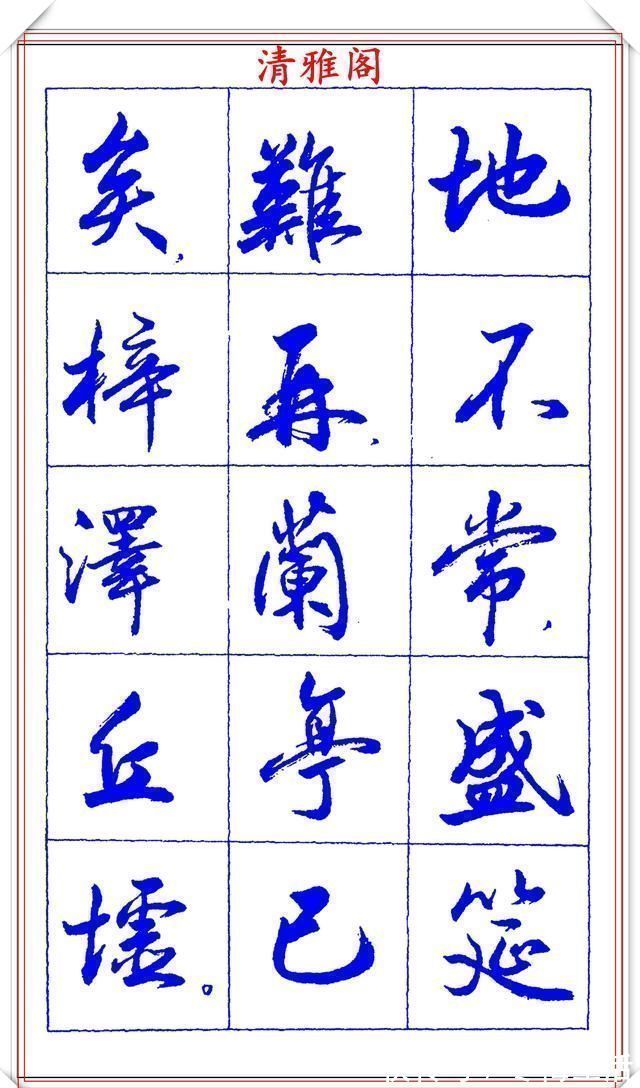 清雅阁
地不常，盛筵
難再，蘭亭已
矣，梓澤丘墟。